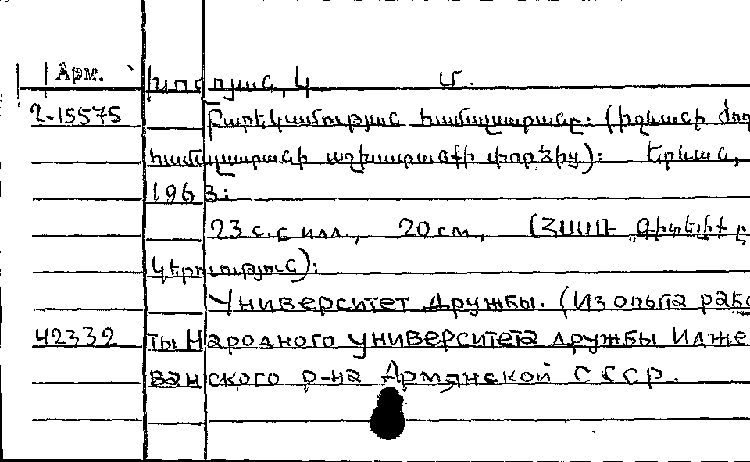 Арм. Խոջոյան, Կ Մ.
2-15575 Բարեկամության համալսարանը: (Իջևանի ժող
համալսարանի աշխատանքի փորձից): Երևան,
1963:
23 с. с илл., 20 см, (ՀՍՍՌ Գիտելիք ը
կերություն):
Университет дружбы. (Из опыта рабо
42332 ты Народного университета дружбы Идже
ванского р-на Армянской ССР.